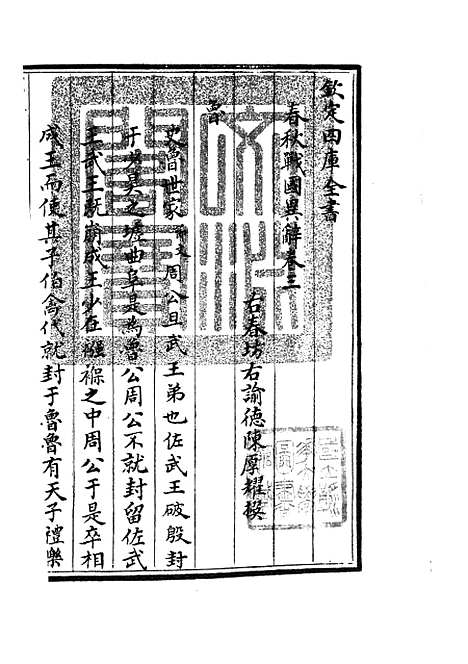 欽定四庫全書
春秋戰國異辭卷三
右春坊右諭德陳厚耀撰
魯
史魯世家節文周公旦武王弟也佐武王破殷封
于少昊之墟曲阜是為魯公周公不就封留佐武
王武王既崩成王少在襁褓之中周公于是卒相
成王而使其子伯禽代就封于魯魯有天子禮樂